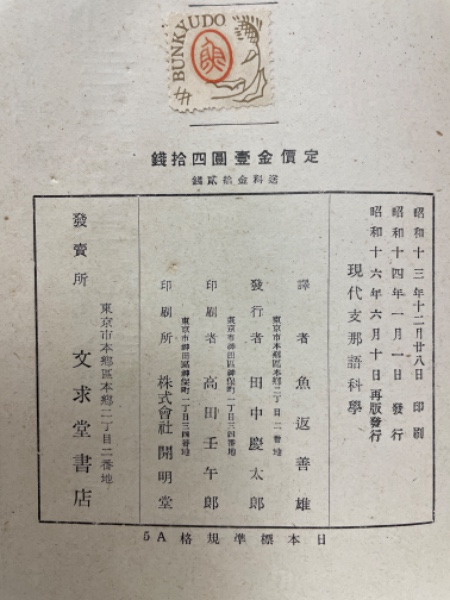 BUNKYUDO
定價金壹圓四拾錢
送料金拾貳錢
昭和十三年十二月廿八日 印刷
昭和十四年一月一日 發行
昭和十六年六月十日再版發行
現代支那語科學
譯者 魚返善雄
東京市本鄉區本鄉二丁目二番地
發行者 田中慶太郎
東京市神田區神保町一丁目三四番地
印刷者 高田壬午郎
東京市神田區神保町一丁目三四番地
印刷所 株式會社開明堂
發賣所
東京市本鄉區本鄉二丁目二番地
文求堂書店
日本標準規格A5